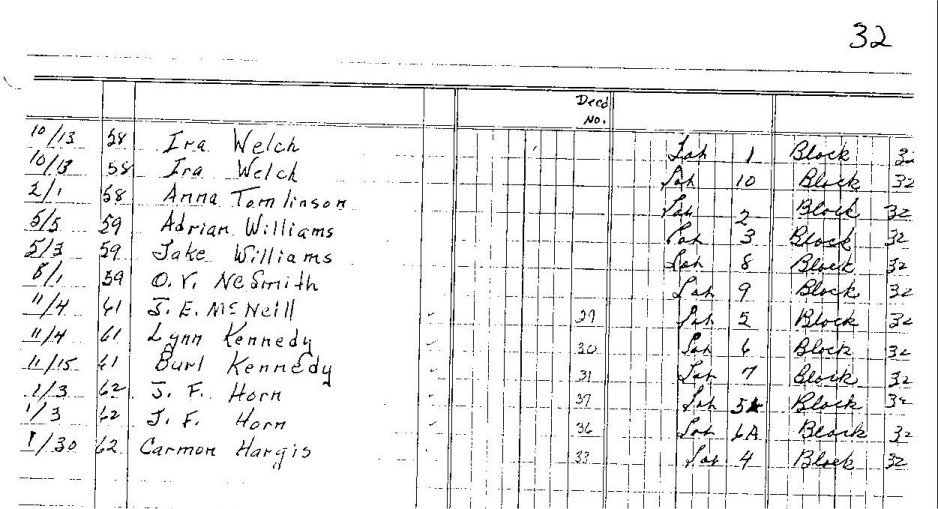 32
Deed
No.
10/13 58 Ira Welch Lot 1 Block 32
10/13 58 Ira Welch Lot 10 Block 32
2/1 58 Anna Tomlinson Lot 2 Block 32
5/5 59 Adrian Williams Lot 3 Block 32
5/3 59 Jake Williams Lot 8 Block 32
8/1 59 O.V. NeSmith Lot 9 Block 32
11/4 61 J.E. McNeill 29 Lot 5 Block 32
11/4 61 Lynn Kennedy 30 Lot 6 Block 32
11/15 61 Burl Kennedy 31 Lot 7 Block 32
1/3 62 J. F. Horn 37 Lot 5A Block 32
1/3 62 J. F. Horn 36 Lot 6A Block 32
1/30 62 Carmon Hargis 33 Lot 4 Block 32